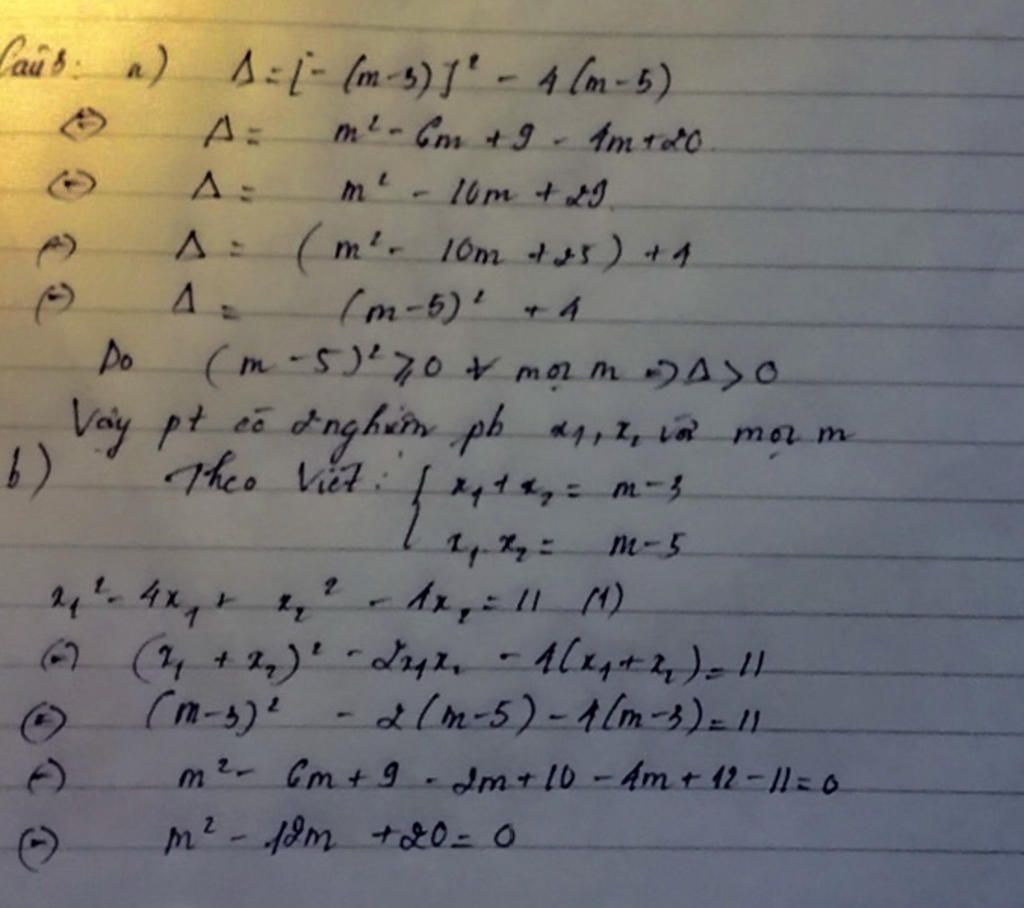 Câu 5: a) Δ = [-(m-3)]² - 4(m-5)
(=) Δ = m² - 6m + 9 - 4m + 20
(=) Δ = m² - 10m + 29
(=) Δ = (m² - 10m + 25) + 4
(=) Δ = (m-5)² + 4
Do (m-5)² ≥ 0 ∀ mọi m => Δ > 0
Vậy pt có 2 nghiệm pb x₁, x₂ với mọi m
b) Theo Viét: { x₁ + x₂ = m-3
x₁.x₂ = m-5
x₁² - 4x₁ + x₂² - 4x₂ = 11 (1)
(=) (x₁ + x₂)² - 2x₁x₂ - 4(x₁ + x₂) = 11
(=) (m-3)² - 2(m-5) - 4(m-3) = 11
(=) m² - 6m + 9 - 2m + 10 - 4m + 12 - 11 = 0
(=) m² - 12m + 20 = 0